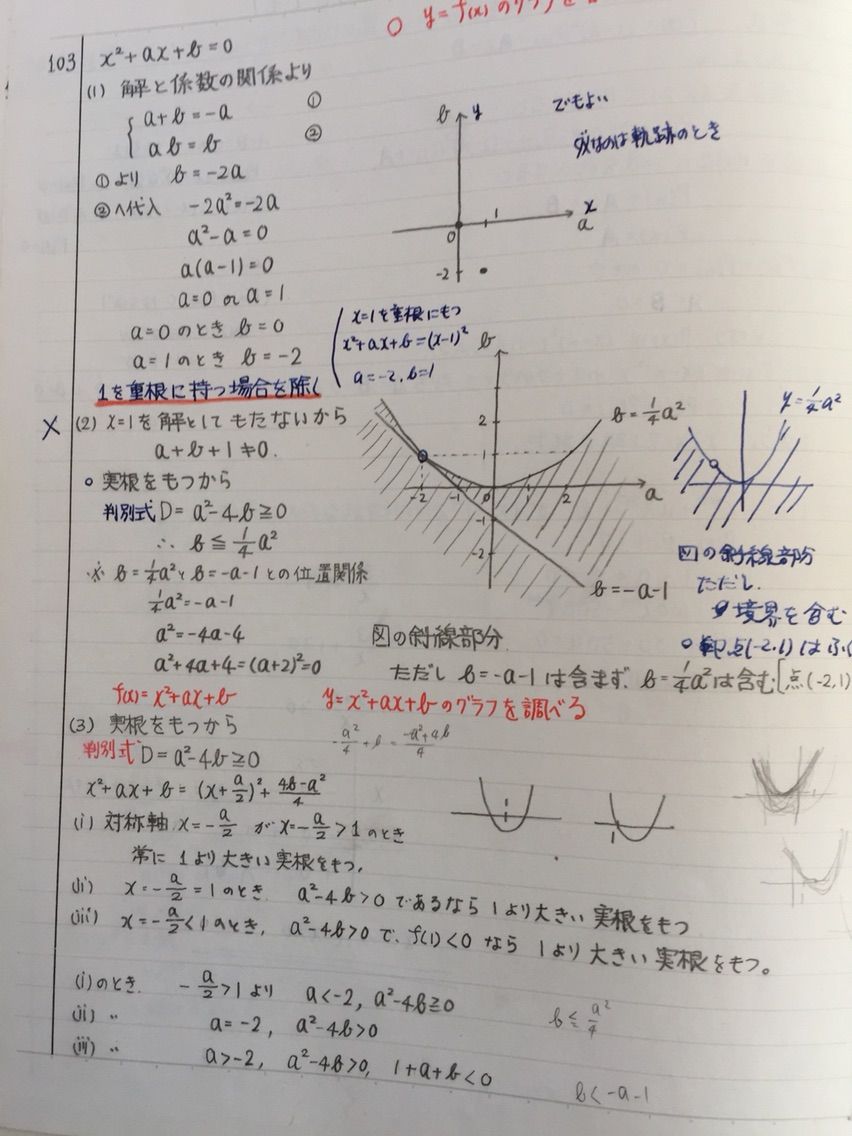 ○ y=f(x) のグラフを
103 x²+ax+b=0
(1) 解と係数の関係より
a+b=-a ①
ab=b ②
①より b=-2a
②へ代入 -2a²=-2a
a²-a=0
a(a-1)=0
a=0 or a=1
a=0のとき b=0
a=1のとき b=-2
b y
でもよい
のは軌跡のとき
x
a
0
1
-2
x=1を重根にもつ
x²+ax+b=(x-1)²
a=-2, b=1
1を重根に持つ場合を除く
× (2) x=1を解としてもたないから
a+b+1≠0.
○ 実根をもつから
判別式 D=a²-4b≧0
∴ b≦1/4a²
※ b=1/4a²とb=-a-1との位置関係
1/4a²=-a-1
a²=-4a-4
a²+4a+4=(a+2)²=0
b
b=1/4a²
2
1
-2 -1 0 2 a
-1
-2
b=-a-1
y=1/4a²
図の斜線部分
ただし.
境界を含む
○ 点(-2,1)はふく
図の斜線部分.
ただし b=-a-1は含まず. b=1/4a²は含む[点(-2,1)
f(x)=x²+ax+b y=x²+ax+bのグラフを調べる
(3) 実根をもつから
-a²/4+b=-a²+4b/4
判別式 D=a²-4b≧0
x²+ax+b=(x+a/2)²+4b-a²/4
(i) 対称軸 x=-a/2 が x=-a/2>1のとき
常に1より大きい実根をもつ.
(ii) x=-a/2=1のとき. a²-4b>0であるなら1より大きい実根をもつ
(iii) x=-a/2<1のとき, a²-4b>0で, f(1)<0なら1より大きい実根をもつ。
(i)のとき. -a/2>1より a<-2, a²-4b≧0
b≦a²/4
(ii) 〃 a=-2, a²-4b>0
(iii) 〃 a>-2, a²-4b>0, 1+a+b<0
b<-a-1